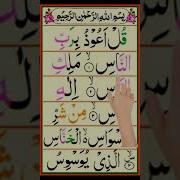 بِسْمِ اللهِ الرَّحْمٰنِ الرَّحِيْمِ
قُلْ اَعُوْذُ بِرَبِّ
النَّاسِ مَلِكِ
النَّاسِ اِلٰهِ
مِنْ شَرِّ
الْخَنَّاسِ
الَّذِيْ يُوَسْوِسُ